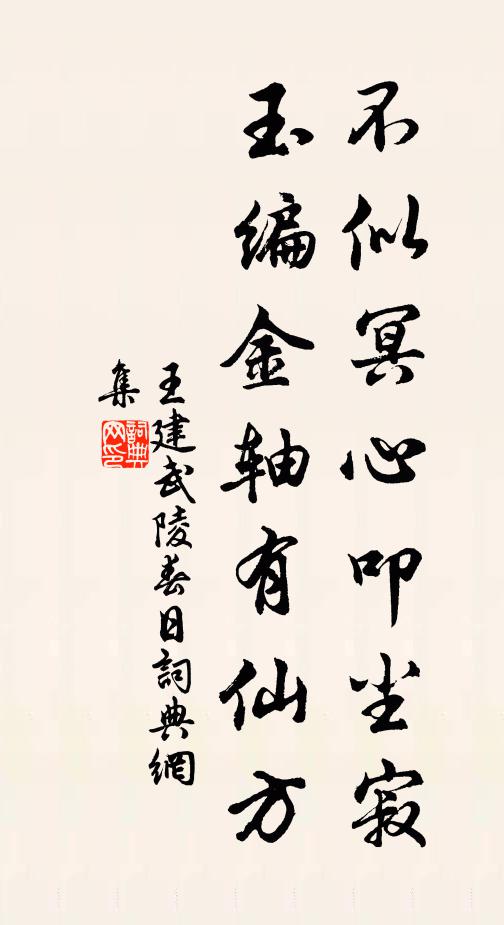 不似冥心叩尘寂
玉编金轴有仙方
王建武陵春日詞典網
集
詞典
网印